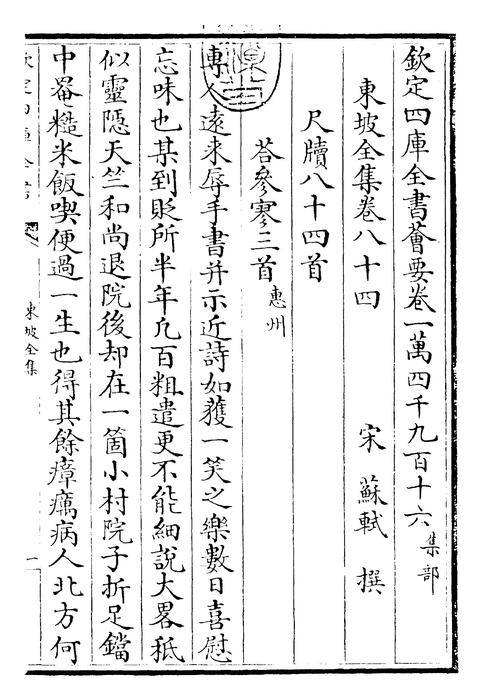 欽定四庫全書薈要卷一萬四千九百十六集部
東坡全集卷八十四　宋　蘇軾　撰
尺牘八十四首
荅參寥三首惠州
專人遠来辱手書并示近詩如獲一笑之樂數日喜慰
忘味也某到貶所半年凡百粗遣更不能細說大畧秪
似靈隱天竺和尚退院後却在一箇小村院子折足鐺
中罨糙米飯喫便過一生也得其餘瘴癘病人北方何
東坡全集
一